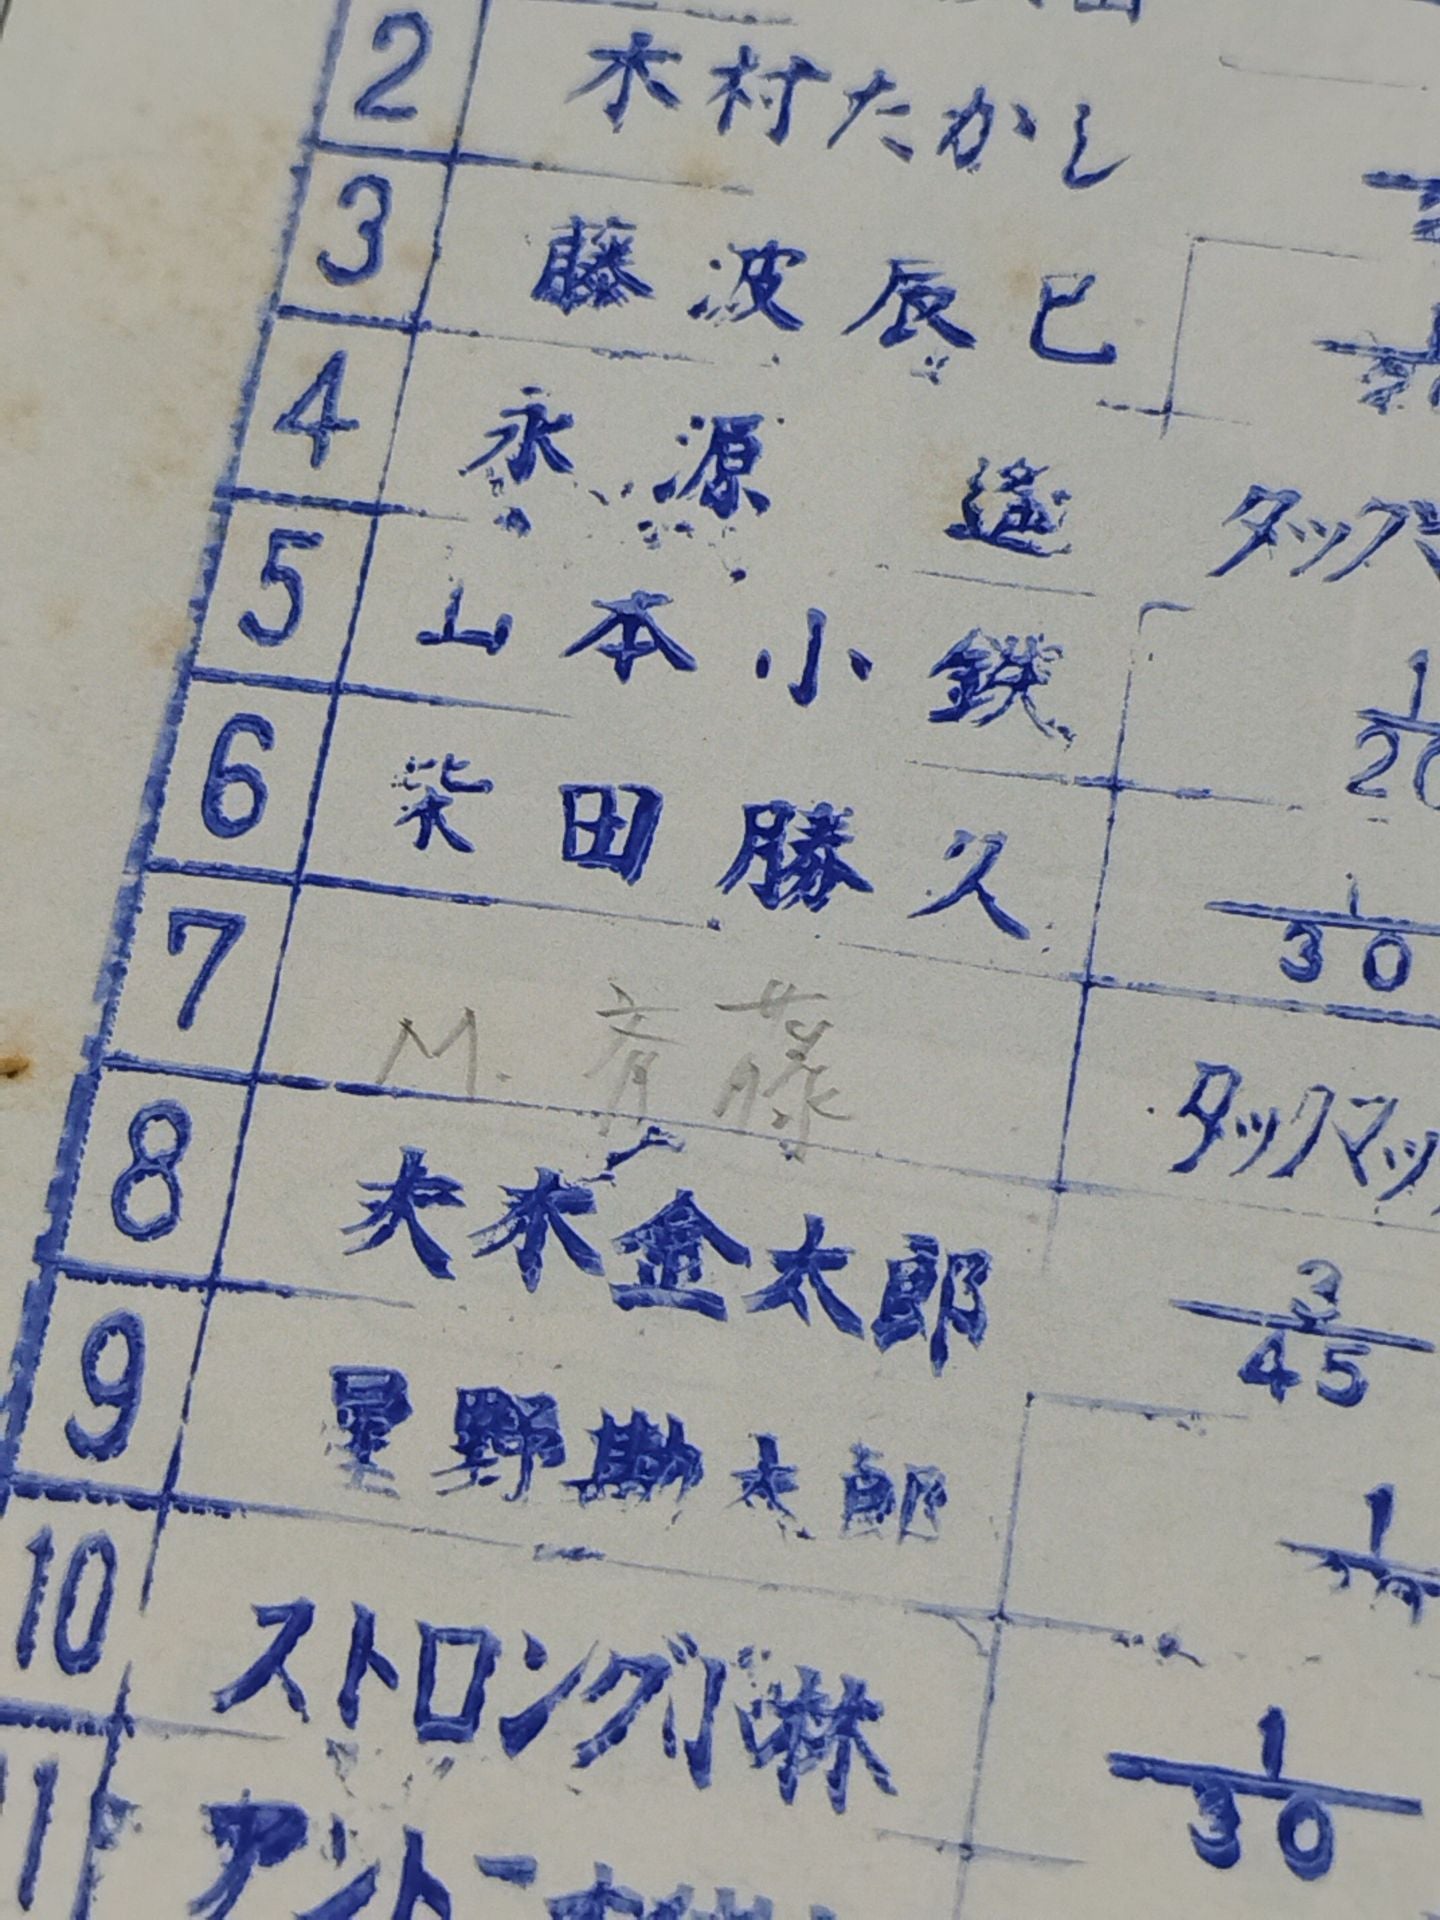 2 木村たかし
3 藤波辰巳
4 永源 遥 タッグマ
5 山本小鉄 1/20
6 柴田勝久 1/30
7 M.斉藤 タッグマッ
8 大木金太郎 3/45
9 星野勘太郎 1
10 ストロング小林 1/30
11 アントニオ